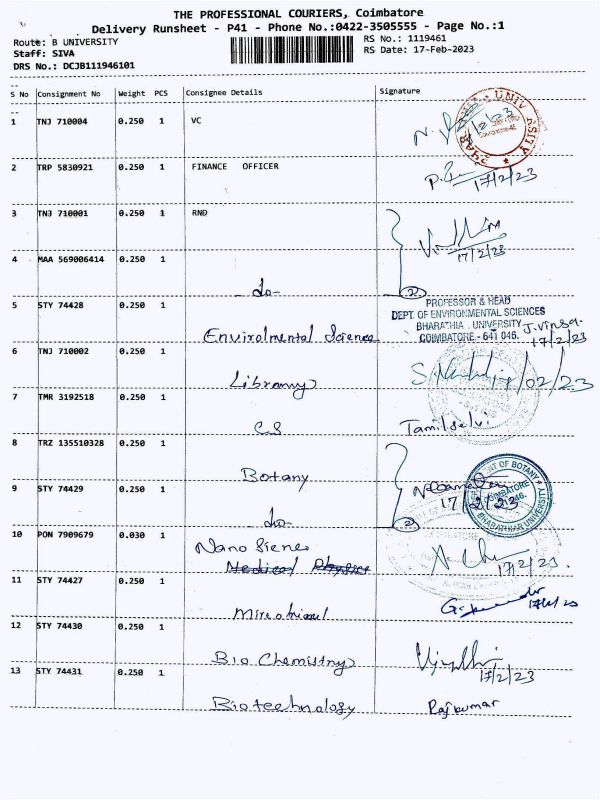 THE PROFESSIONAL COURIERS, Coimbatore
Delivery Runsheet - P41 - Phone No.:0422-3505555 - Page No.:1
Route: B UNIVERSITY
RS No.: 1119461
Staff: SIVA
RS Date: 17-Feb-2023
DRS No.: DCJB111946101
S No Consignment No Weight PCS Consignee Details Signature
1 TNJ 710004 0.250 1 VC
2 TRP 5830921 0.250 1 FINANCE OFFICER
17/2/23
3 TNJ 710001 0.250 1 RND
17/2/23
4 MAA 569006414 0.250 1
-do-
2
5 STY 74428 0.250 1
Envirolmental Science
PROFESSOR & HEAD
DEPT. OF ENVIRONMENTAL SCIENCES
UNIVERSITY
COIMBATORE - 641 046.
17/2/23
6 TNJ 710002 0.250 1
Library
17/02/23
7 TMR 3192518 0.250 1
C.S
Tamilselvi
8 TRZ 135510328 0.250 1
Botany
17/2/23
9 STY 74429 0.250 1
-do-
2
10 PON 7909679 0.030 1
Nano Sienes
Medical Physics
17/2/23.
11 STY 74427 0.250 1
12 STY 74430 0.250 1
Bio Chemistry
17/2/23
13 STY 74431 0.250 1
Biotechnology
Rajkumar